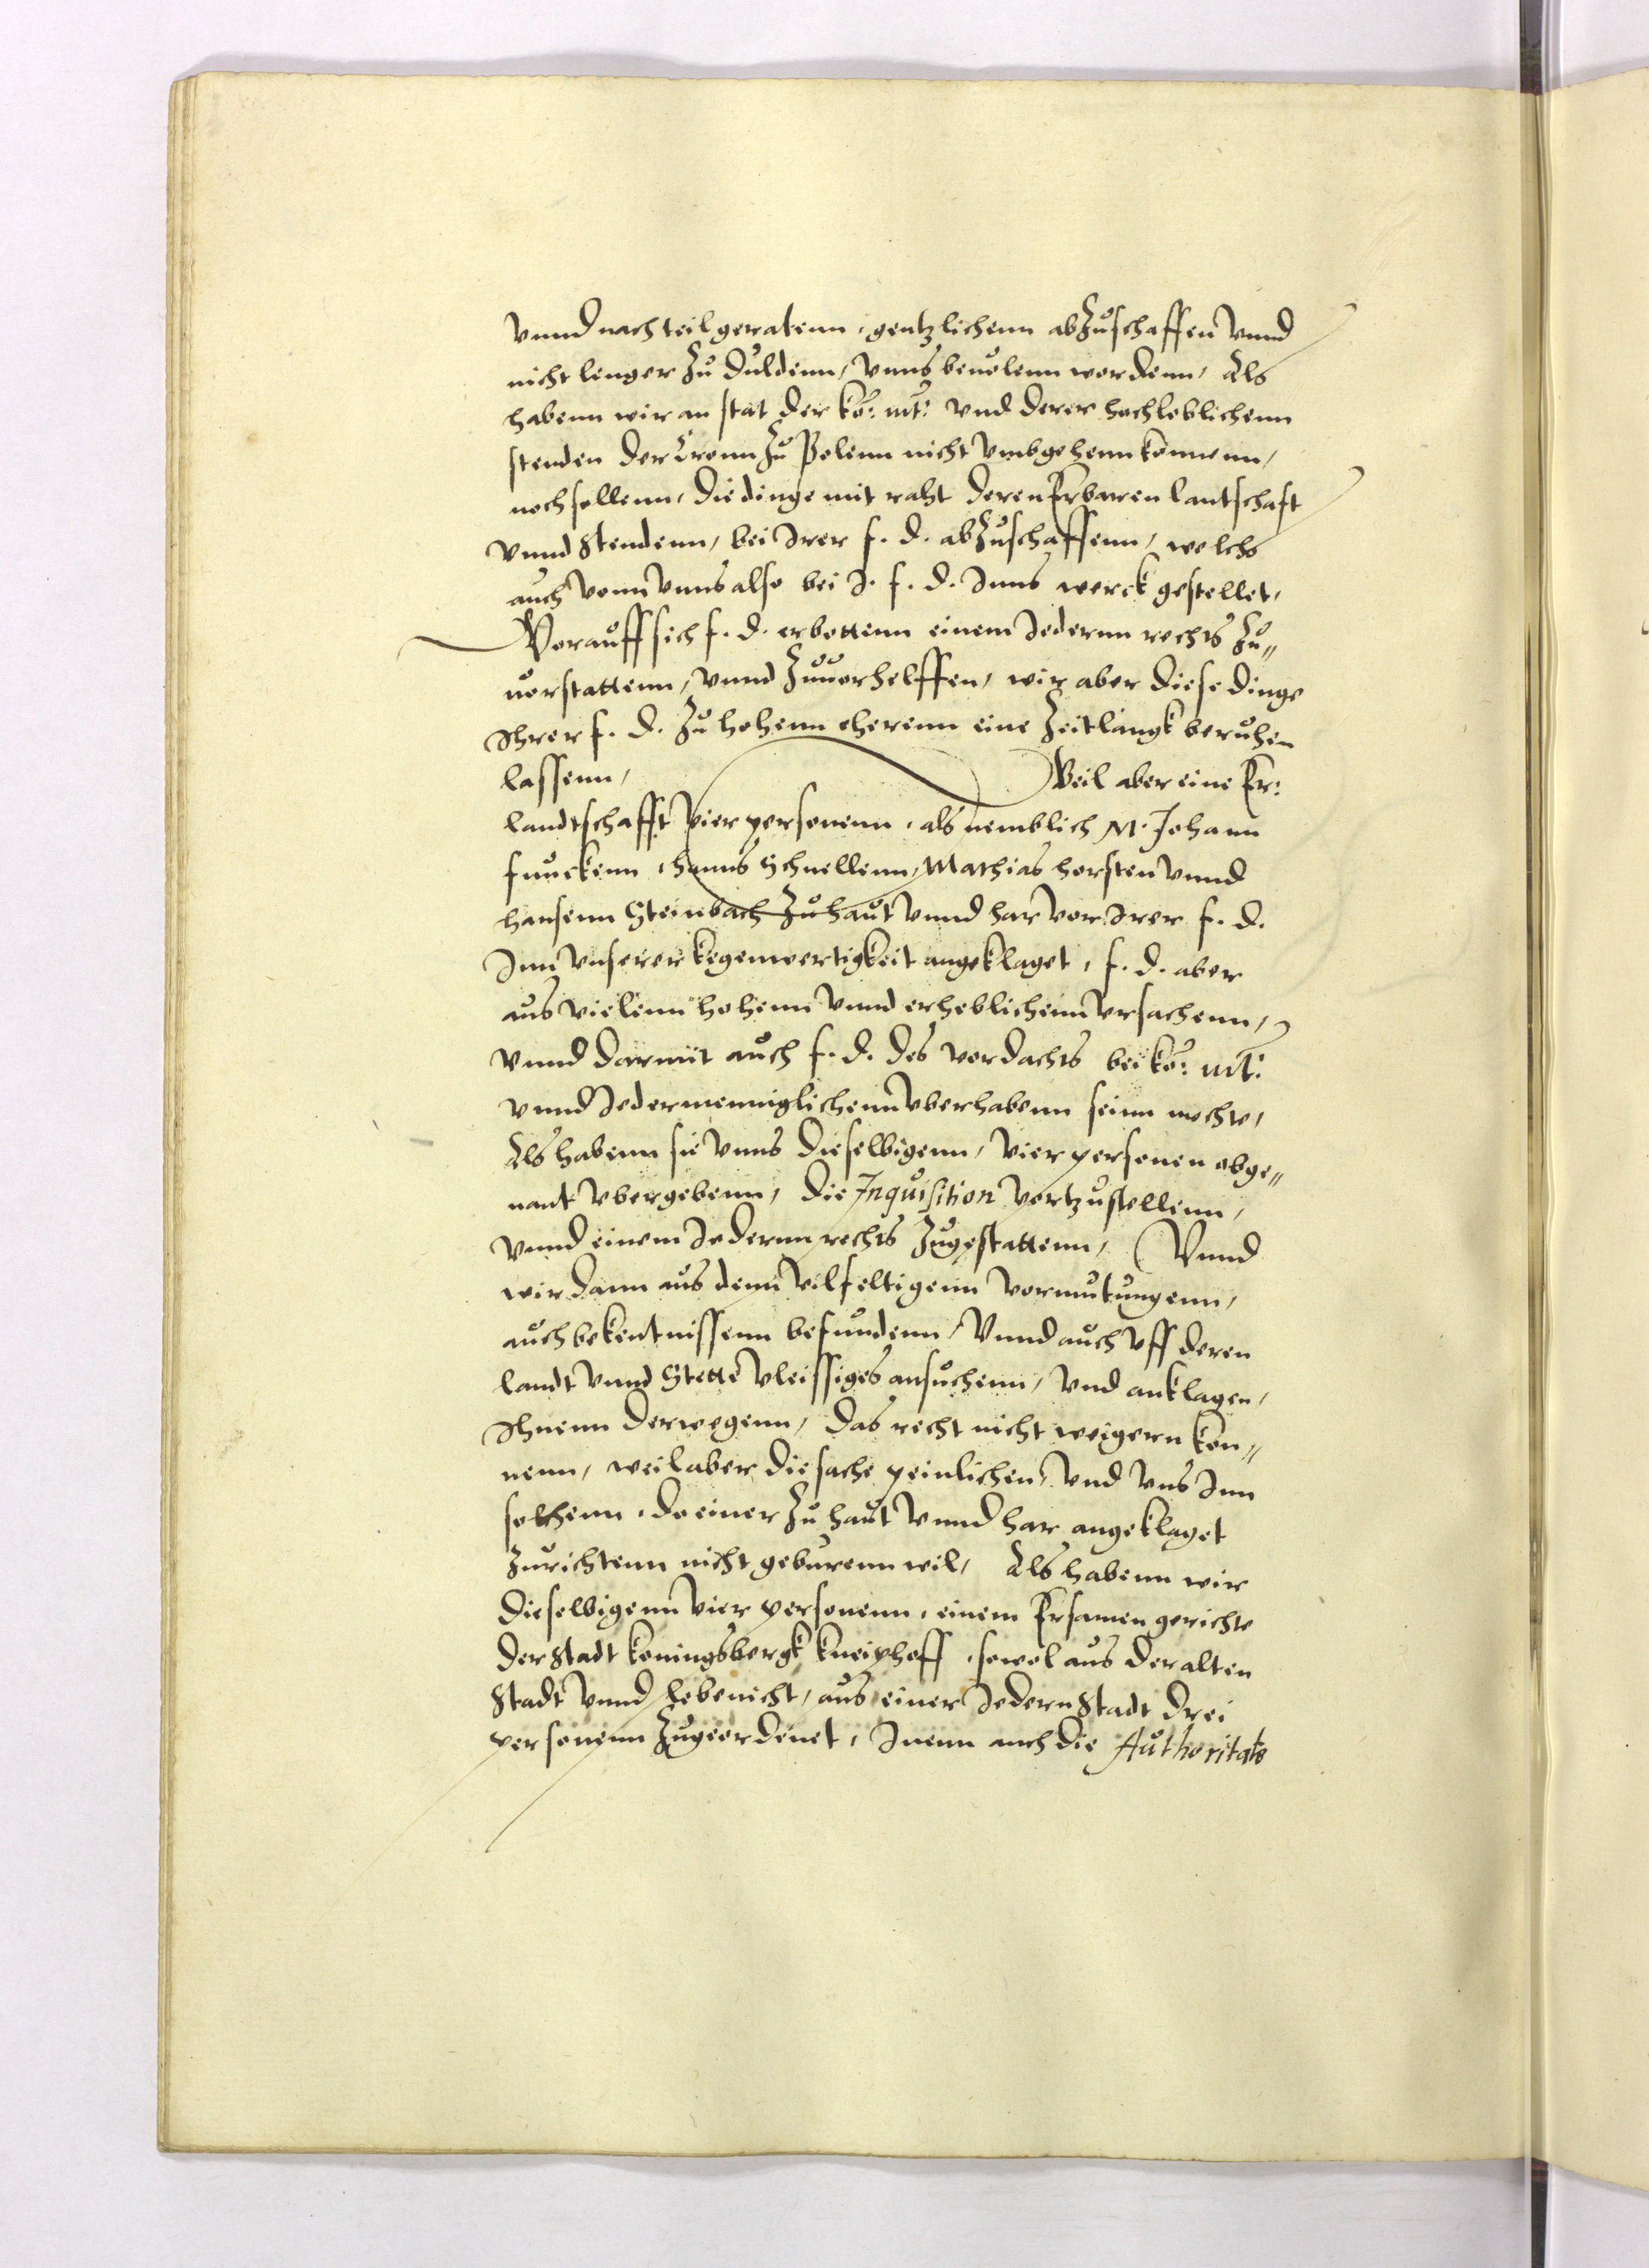 vnnd nachteil geratenn, gentzlichenn abzuschaffen vnnd
nicht lenger zu duldenn, vnns beuolenn wordenn, Als
habenn wir an stat der ko: mt: vnd derer hochloblichenn
stenden der Cronn zu Polenn nicht vmbgehenn konnenn,
noch sollenn, die dinge mit raht deren Erbaren lantschaft
vnnd Stendenn, bei Irer f. d. abzuschaffenn, welchs
auch vonn vnns also bei J. f. d. Inns werck gestellet,
Worauff sich f. d. erbottenn einem Jedernn rechts zu„
uorstattenn, vnnd zuuorhelffen, wir aber diese dinge
Ihrer f. d. zu hohenn eherenn eine zeitlangk beruhen
lassenn, Weil aber eine Er:
landtschafft vier personenn, als nemblich M. Johann
funckenn, hanns Schnellenn, Mathias horsten vnnd
hansenn Steinbach zu haut vnnd har vor Irer f. d.
Inn vnserer kegenwertigkeit angeklaget, f. d. aber
aus vielenn hohenn vnnd erheblichenn vrsachenn,
vnnd darmit auch f. d. des vordachts bei ko: mt:
vnnd Jedermenniglichenn vberhabenn seinn mochte,
Als habenn sie vnns dieselbigenn, vier personen obge„
nant vbergebenn, die Inquisition vortzustellenn,
vnnd einem Jedernn rechts zugestattenn, Vnnd
wir dann aus denn vilfeltigenn vormutungenn,
auch bekentnissenn befundenn, Vnnd auch vff deren
landt vnnd Stette vleissiges ansuchenn, vnd anklagen,
Ihnenn derwegenn, das recht nicht weigern kon„
nenn, weil aber die sache peinlichen, vnd vns Inn
solchenn, do einer zu haut vnnd har angeklaget
zurichtenn nicht geburenn wil, Als habenn wir
dieselbigenn vier personenn, einem Ersamen gerichte
der Stadt koningsbergk kneiphoff, sowol aus der alten
Stadt vnnd lebenicht, aus einer Jedern Stadt drei
personenn zugeordenet, Inenn auch die Authoritate